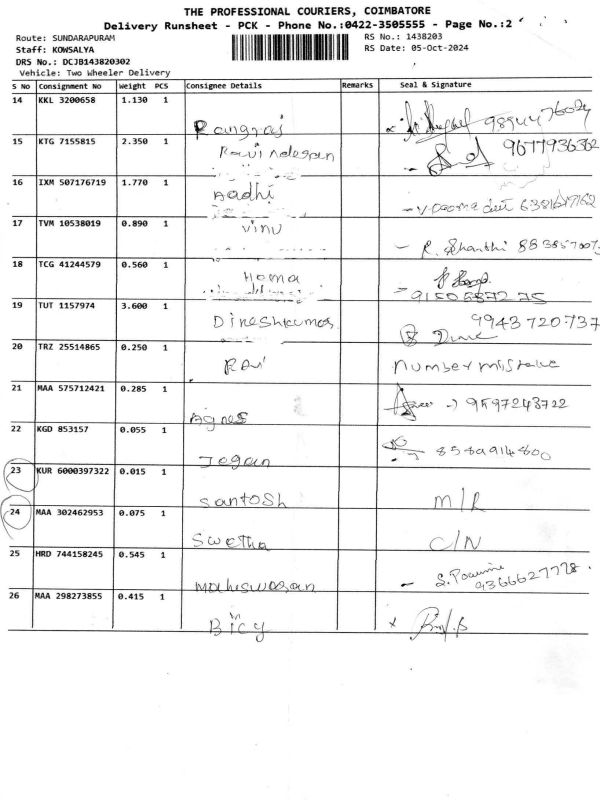 THE PROFESSIONAL COURIERS, COIMBATORE
Delivery Runsheet - PCK - Phone No.:0422-3505555 - Page No.:2
Route: SUNDARAPURAM
RS No.: 1438203
Staff: KOWSALYA
RS Date: 05-Oct-2024
DRS No.: DCJB143820302
Vehicle: Two Wheeler Delivery
S No Consignment No Weight PCS Consignee Details Remarks Seal & Signature
14 KKL 3200658 1.130 1
Rangraj
15 KTG 7155815 2.350 1
9677936362
16 IXM 507176719 1.770 1
Aadhi
17 TVM 10538019 0.890 1
vinu
R. Shanthi
18 TCG 41244579 0.560 1
Homa
19 TUT 1157974 3.600 1
Dineshkumar 9943720737
20 TRZ 25514865 0.250 1
Ravi number mistake
21 MAA 575712421 0.285 1
Agnes 9597243722
22 KGD 853157 0.055 1
Jegan
23 KUR 6000397322 0.015 1
Santosh M/R
24 MAA 302462953 0.075 1
Swetha C/N
25 HRD 744158245 0.545 1
9366627778
Maheswaran
26 MAA 298273855 0.415 1
Bicy